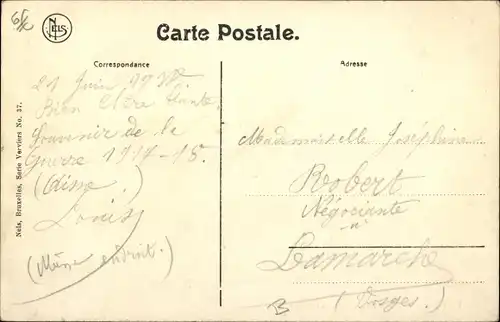 NELS
Carte Postale.
Correspondance
Adresse
21 Juin
Bien Chère Tante
Souvenir de la
Guerre 1917-18.
(Aisne.)
Louis
(Même endroit.)
Mademoiselle Joséphine
Robert
Négociante
à
Lamarche
(Vosges.)
Nels, Bruxelles, Serie Verviers No. 37.